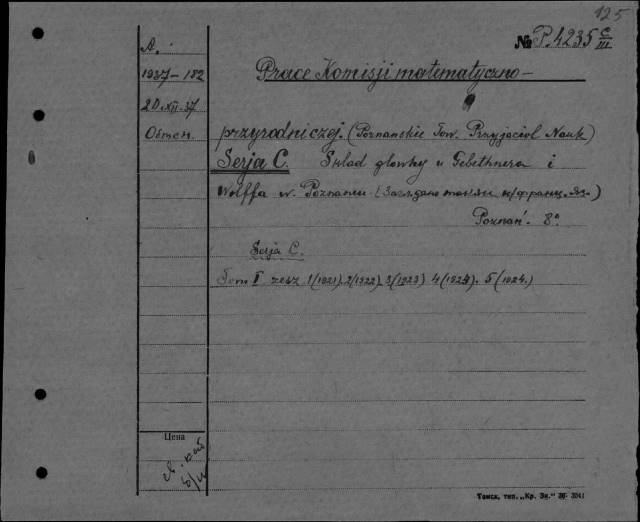 125
№ P.4235 C/III
A.
1937-182
20 XII 37
Обмен.
Prace Komisji matematyczno-
przyrodniczej. (Poznanskie Tow. Przyjaciol Nauk)
Serja C. Skład głowny u Gebethnera i
Wolffa w. Poznaniu (Заглав также и/франц. яз.)
Poznań. 8°
Serja C.
Tom I zesz 1(1921). 2(1922) 3(1923) 4(1924). 5(1924.)
Цена
св. каб
б/ц
Томск, тип. „Кр. Зн." 36-3541